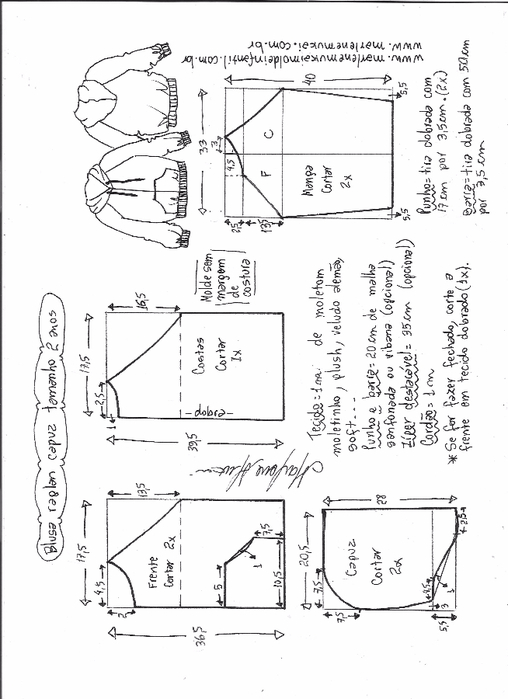 Blusa raglan capuz tamanho 2 anos
17,5
4,5
2
13,5
36,5
Frente
Cortar 2x
5
1
7,5
10,5
17,5
2,5
1
16,5
39,5
Costas
Cortar
1x
dobra
Molde sem
margem
de
costura
33
3
4,5
40
F
C
Manga
Cortar
2x
2,5
13,5
5,5
5,5
www.marlenemukaimoldeinfantil.com.br
www.marlenemukai.com.br
20,5
7,5
7,5
28
Capuz
Cortar
2x
9,5
1
3
5,5
2,5
Tecido = 1m de moletom
moletinho, plush, veludo alemão,
soft....
Punho e barra = 20 cm de malha
sanfonada ou ribana (opcional)
Zíper destacável = 35 cm (opcional)
Cordão = 1 cm
* Se for fazer fechado, corte a
frente em tecido dobrado (1x).
Punho = tira dobrada com
17 cm por 3,5 cm. (2x)
Barra = tira dobrada com 50 cm
por 3,5 cm